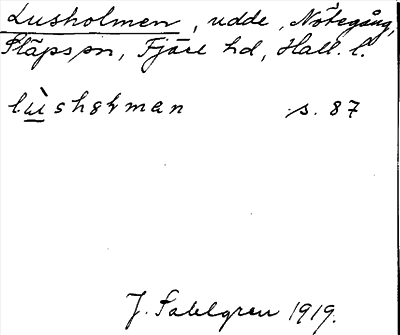 Lusholmen, udde, Nötegång,
Släps sn, Fjäre hd, Hall. l.
s. 87
J. Sahlgren 1919.